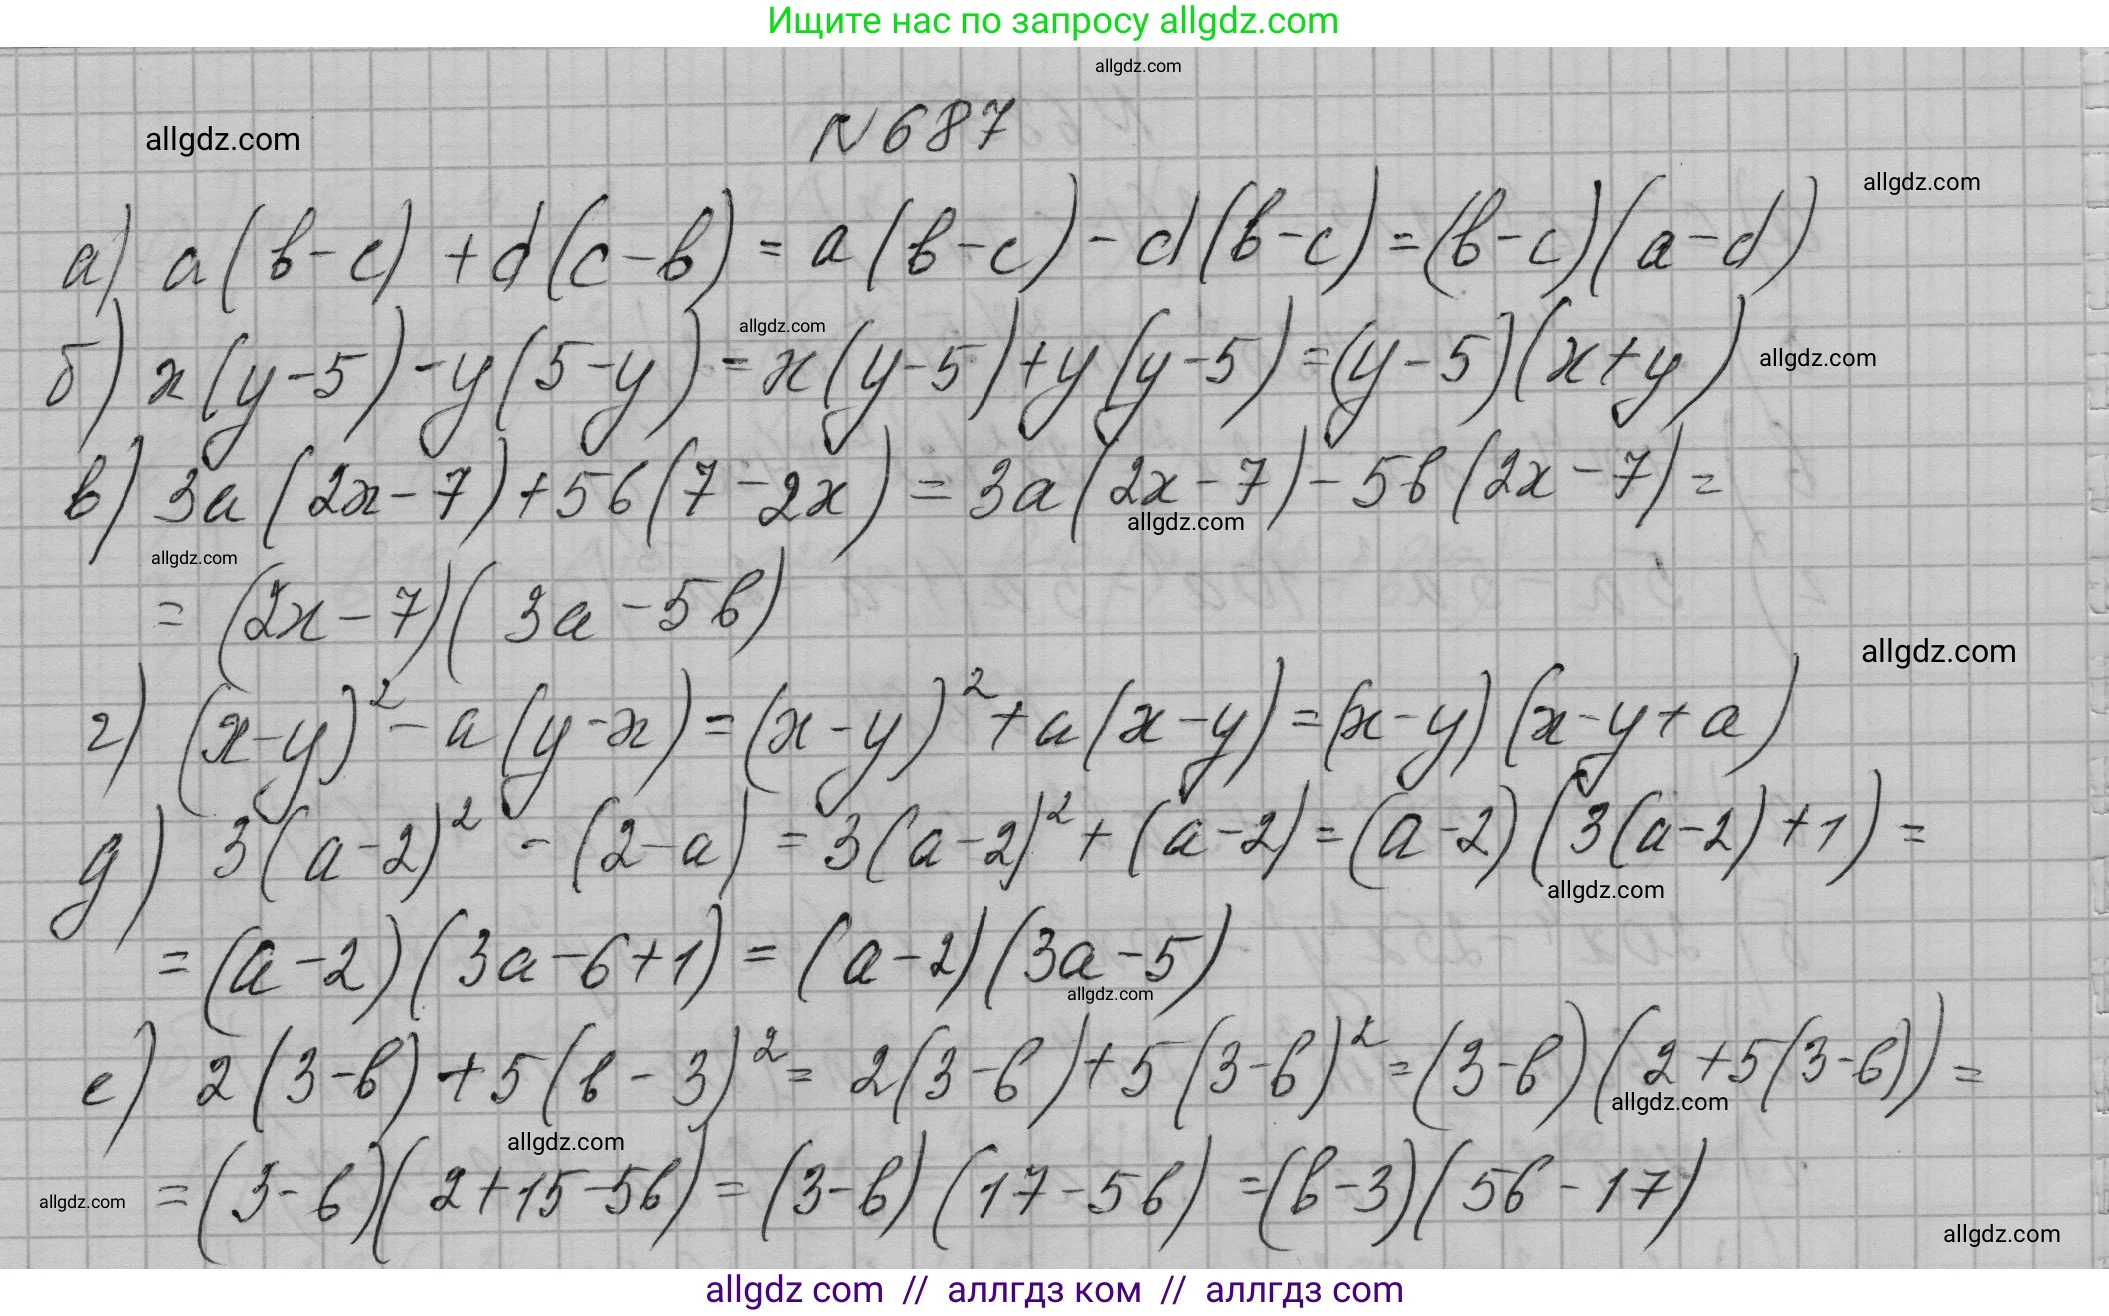 Ищите нас по запросу allgdz.com
allgdz.com
allgdz.com
N687
allgdz.com
а) a(b-c)+d(c-b)=a(b-c)-d(b-c)=(b-c)(a-d)
allgdz.com
б) x(y-5)-y(5-y)=x(y-5)+y(y-5)=(y-5)(x+y)
allgdz.com
в) 3a(2x-7)+5b(7-2x)=3a(2x-7)-5b(2x-7)=
allgdz.com
allgdz.com
=(2x-7)(3a-5b)
allgdz.com
г) (x-y)²-a(y-x)=(x-y)²+a(x-y)=(x-y)(x-y+a)
д) 3(a-2)²-(2-a)=3(a-2)²+(a-2)=(a-2)(3(a-2)+1)=
allgdz.com
=(a-2)(3a-6+1)=(a-2)(3a-5)
allgdz.com
е) 2(3-b)+5(b-3)²=2(3-b)+5(3-b)²=(3-b)(2+5(3-b))=
allgdz.com
allgdz.com
=(3-b)(2+15-5b)=(3-b)(17-5b)=(b-3)(5b-17)
allgdz.com
allgdz.com
allgdz com // аллгдз ком // аллгдз com